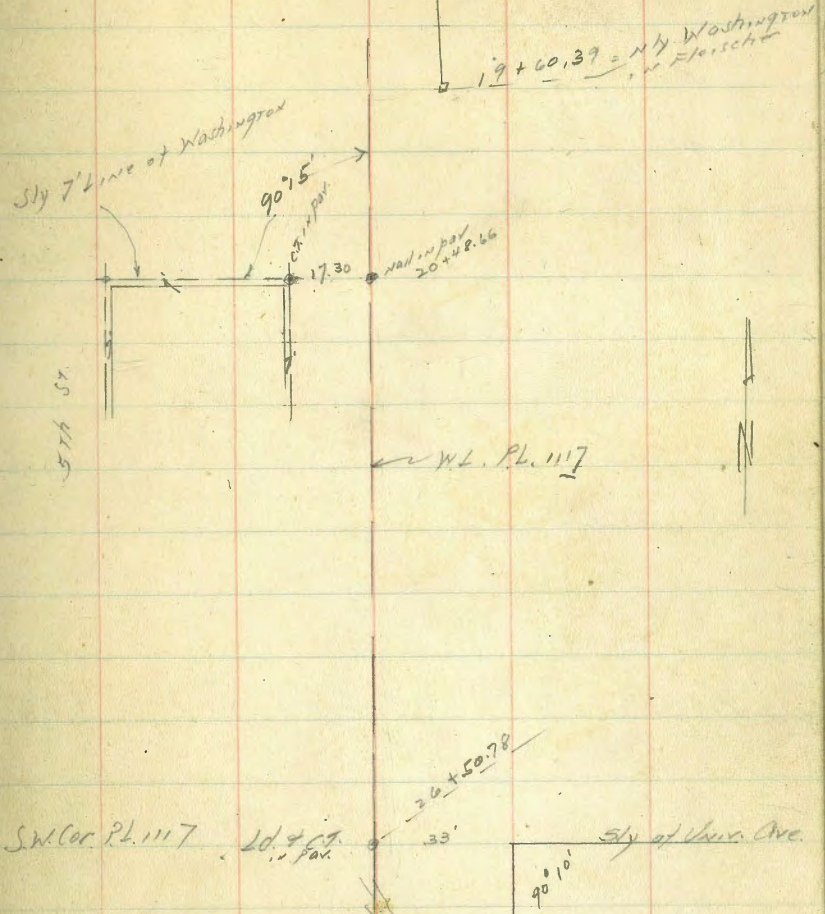 19 + 60.39 = Nly Washington
in Fleischer
Sly 7' Line of Washington
90° 15'
C.T. in pav.
17.30
nail in pav
20 + 48.66
5th St.
W.L. P.L. 1117
N
26 + 50.78
S.W. Cor. P.L. 1117
Ld. & C.T.
in Pav.
33'
Sly of Univ. Ave.
90° 10'